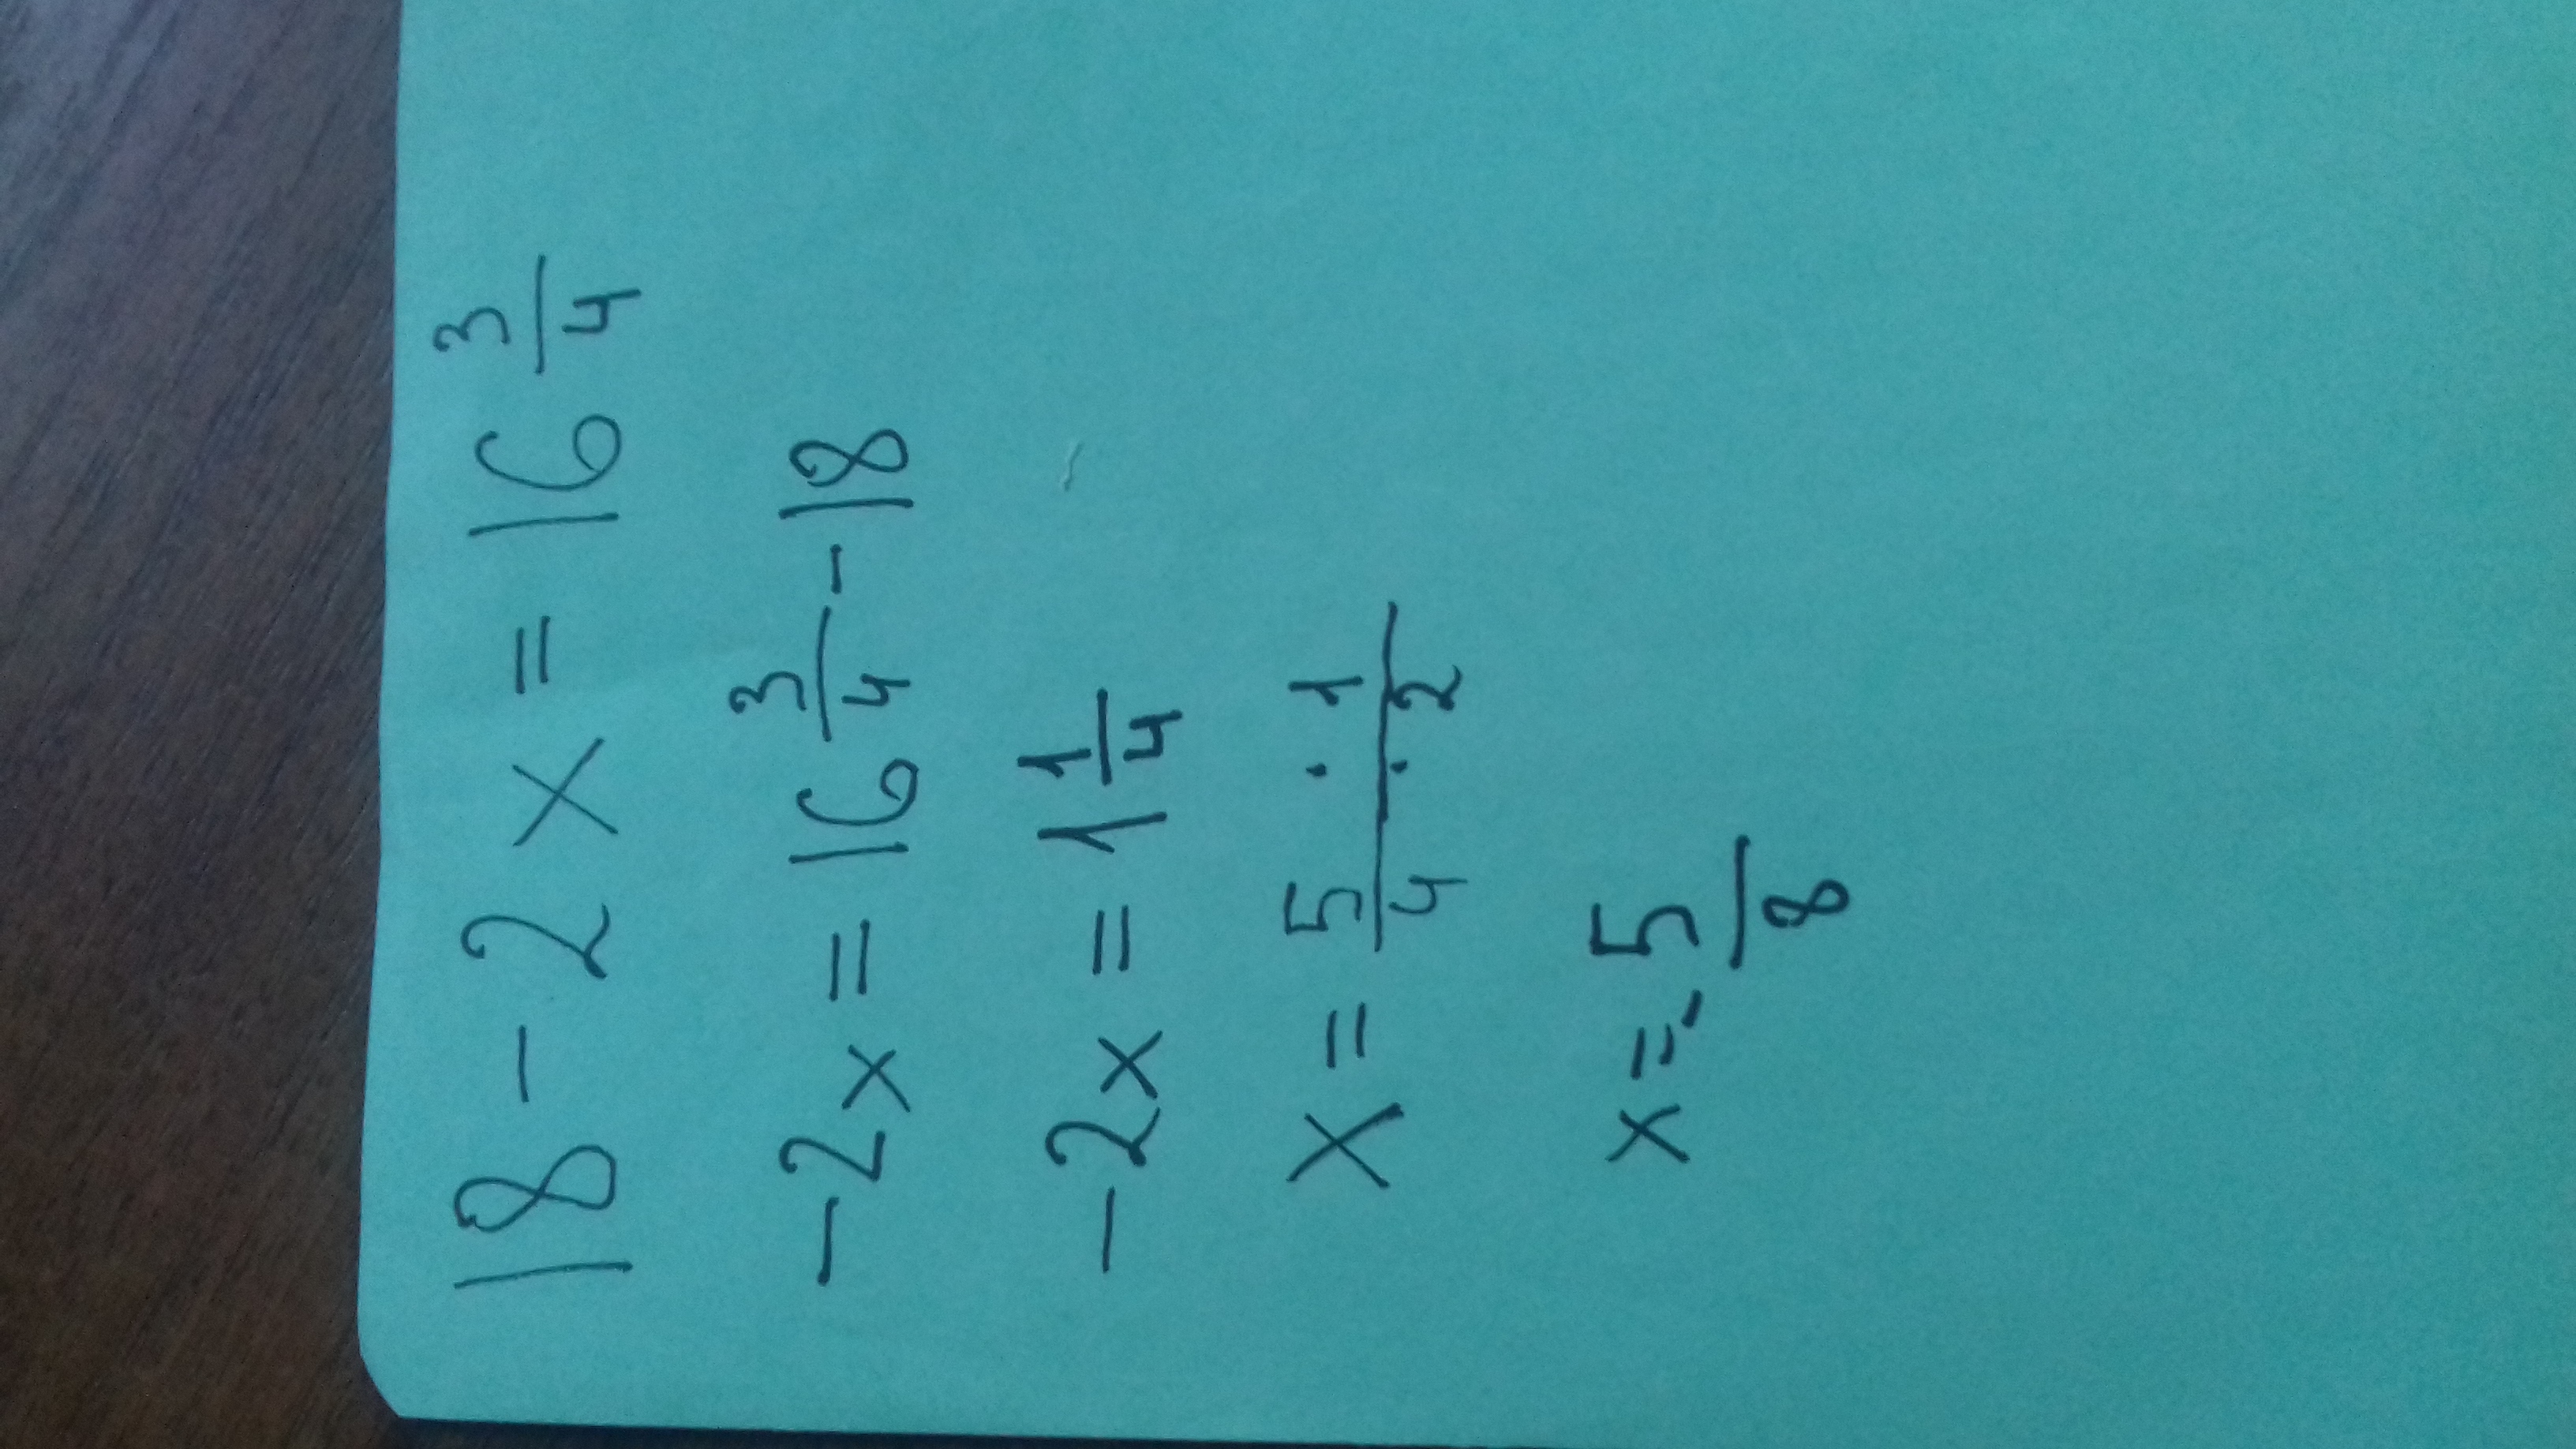 18 - 2x = 16 3/4
-2x = 16 3/4 - 18
-2x = 1 1/4
x = 5 · 1 / 4 · 2
x = - 5/8